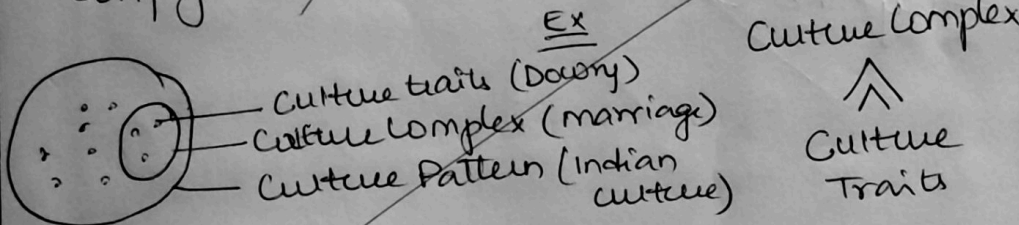 Ex
Culture traits (Dowry)
Culture Complex (marriage)
Culture Pattern (Indian
culture)
Culture Complex
Culture
Traits